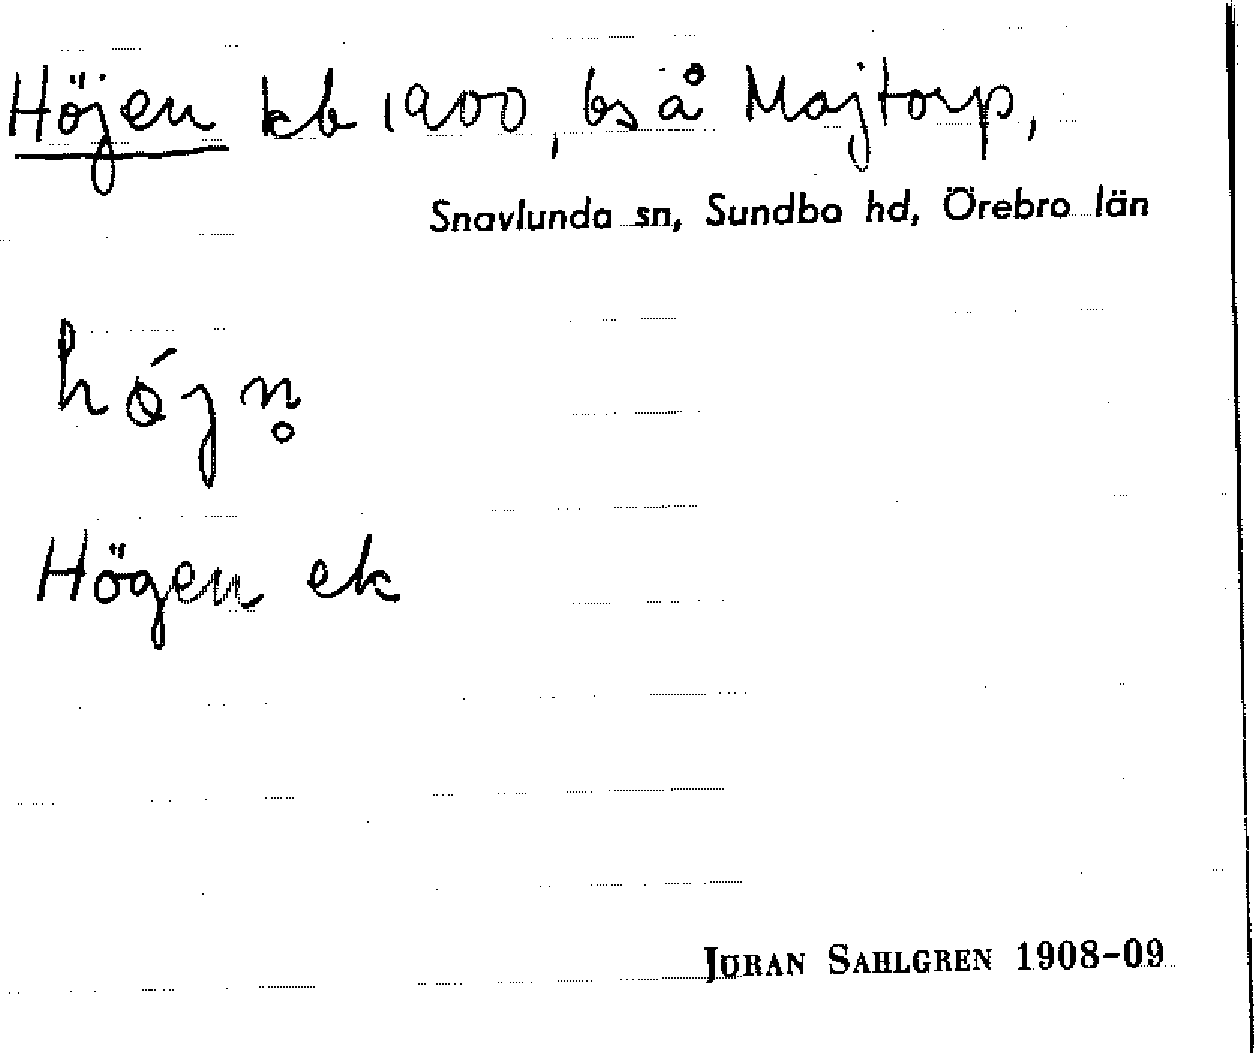 Höjen kb 1900, bs å Majtorp,
Snavlunda sn, Sundbo hd, Örebro län
hǿjn̥
Högen ek
JÖRAN SAHLGREN 1908-09